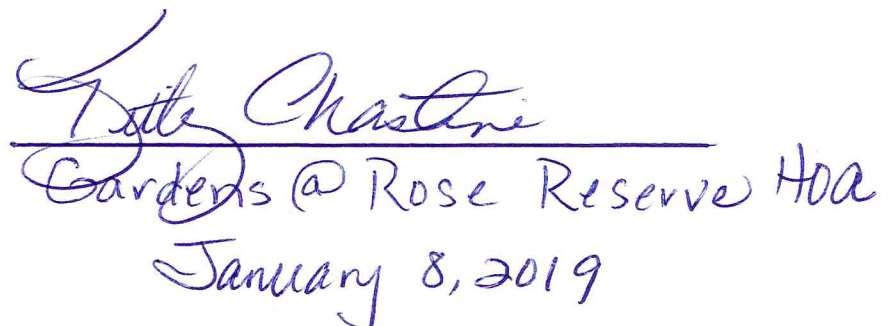 Chastine
Gardens @ Rose Reserve HOA
January 8, 2019